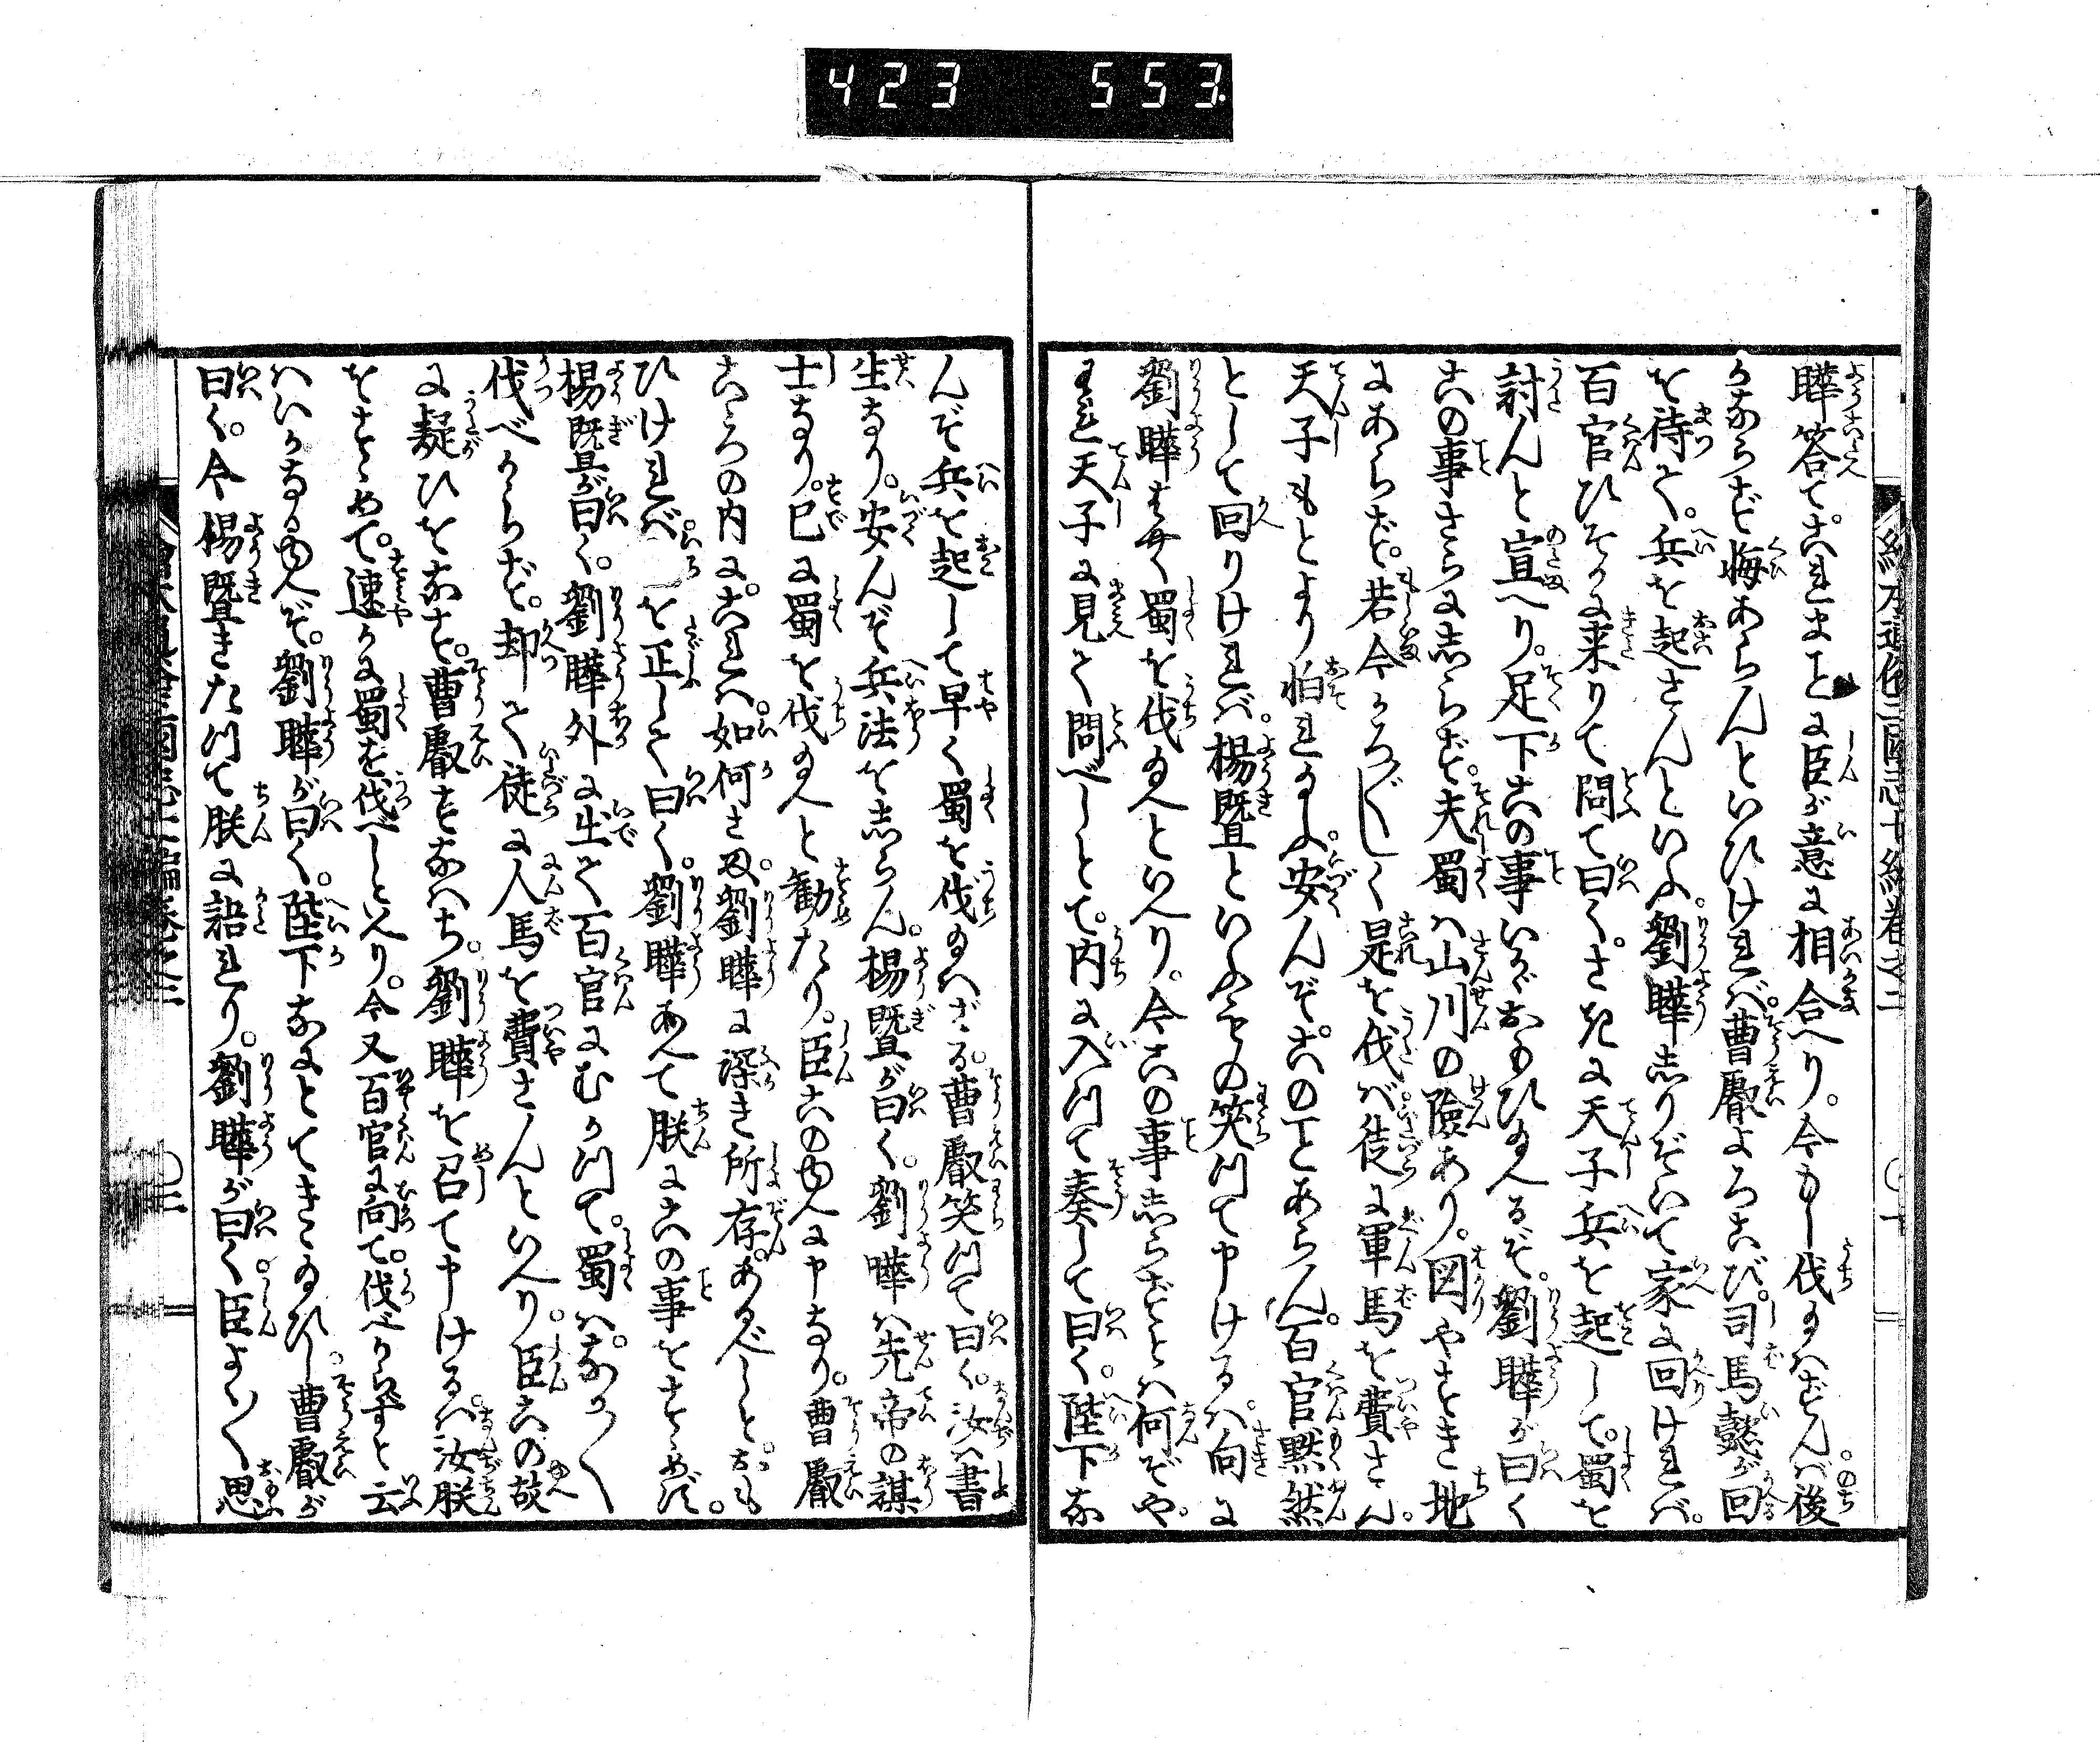 423 553.
曄答て。これまことに臣が意に相合へり。今もし伐給はずんば後
かならず悔あらんといひければ。曹叡よろこび。司馬懿が回
を待て。兵を起さんといふ。劉曄しりぞいて家に回ければ。
百官ひそかに来りて問て曰く。さきに天子兵を起して。蜀を
討んと宣へり。足下この事いかゞおもひ給へるぞ。劉曄が曰く
この事さらにしらず。夫蜀は山川の険あり。図やすき地
にあらず。若今かろ〴〵しく是を伐ば徒に軍馬を費さん。
天子もとより怕れ給ふ。安んぞこのことあらん。百官黙然
として回りければ。楊曁といふもの笑つて申けるは。向に
劉曄はやく蜀を伐給へといへり。今この事しらずとは何ぞや。
われ天子に見て問べしとて。内に入つて奏して曰く。陛下な
んぞ兵を起して早く蜀を伐給はざる。曹叡笑つて曰く。汝は書
生なり。安んぞ兵法をしらん。楊曁が曰く。劉曄は先帝の謀
士なり。已に蜀を伐給へと勧たり。臣この由人に申なり。曹叡
こゝろの内に。これは如何さま。劉曄に深き所存あるべしと。おも
ひければ。いろを正して曰く。劉曄あへて朕にこの事をすゝめず。
楊既曁が曰く。劉曄外に出て百官にむかつて。蜀はなか〳〵
伐べからず。却て徒に人馬を費さんといへり。臣この故
に疑ひをなす。曹叡すなはち。劉曄を召て申けるは。汝朕
をすゝめて。速かに蜀を伐べしといへり。今又百官に向て。伐べからずと云
はいかなるゆへぞ。劉曄が曰く。陛下なにとてきゝ給ひし。曹叡が
曰く。今楊曁きたつて朕に語れり。劉曄が曰く。臣よく〳〵思